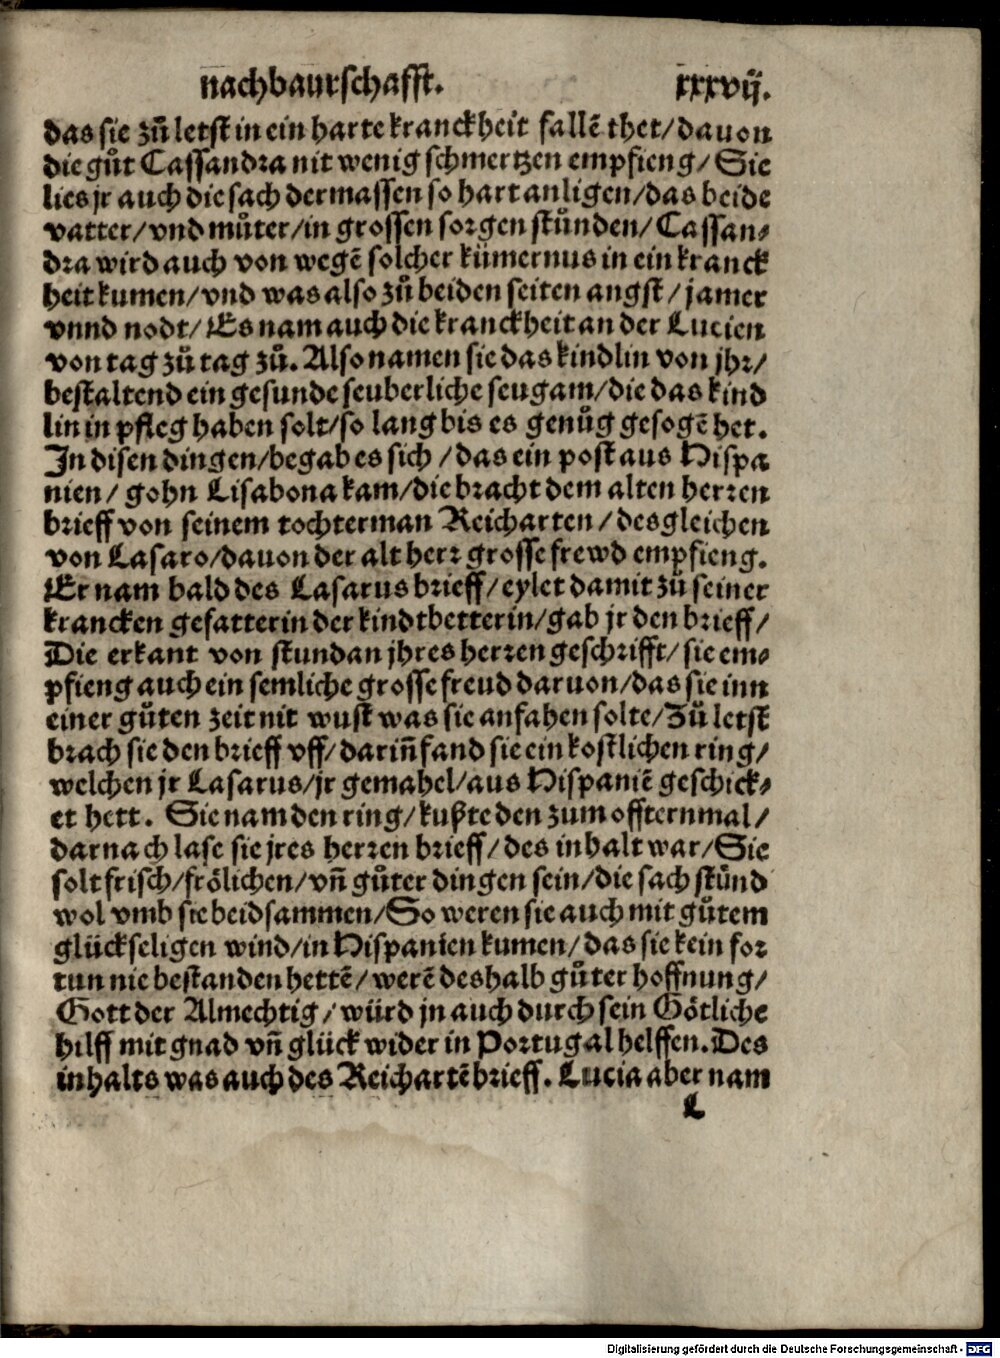 nachbaurschafft. xxxvij.
das sie zů letst in ein harte kranckheit fallẽ thet/dauon
die gůt Cassandra nit wenig schmertzen empfieng/Sie
lies jr auch die sach dermassen so hart anligen/das beide
vatter/vnd můter/in grossen sorgen stůnden/Cassan⸗
dra wird auch von wegẽ solcher kümernus in ein kranck
heit kumen/vnd was also zů beiden seiten angst/jamer
vnnd nodt/Es nam auch die kranckheit an der Lucien
von tag zů tag zů. Also namen sie das kindlin von jhr/
bestaltend ein gesunde seuberliche seugam/die das kind
lin in pfleg haben solt/so lang bis es genůg gesogẽ het.
In disen dingen/begab es sich/das ein post aus Hispa
nien/gohn Lisabona kam/die bracht dem alten herren
brieff von seinem tochterman Reicharten/desgleichen
von Lasaro/dauon der alt herr grosse frewd empfieng.
Er nam bald des Lasarus brieff/eylet damit zů seiner
krancken gefatterin der kindtbetterin/gab jr den brieff/
Die erkant von stund an jhres herren geschrifft/sie em⸗
pfieng auch ein semliche grosse freud daruon/das sie inn
einer gůten zeit nit wust was sie anfahen solte/Zů letst
brach sie den brieff vff/dariñ fand sie ein kostlichen ring/
welchen jr Lasarus/jr gemahel/aus Hispaniẽ geschick⸗
et hett. Sie nam den ring/kußte den zum offternmal/
darnach lase sie jres herren brieff/des inhalt war/Sie
solt frisch/frölichen/vñ gůter dingen sein/die sach stůnd
wol vmb sie beidsammen/So weren sie auch mit gůtem
glückseligen wind/in Hispanien kumen/das sie kein for
tun nie bestanden hettẽ/werẽ deshalb gůter hoffnung/
Gott der Almechtig/würd jn auch durch sein Götliche
hilff mit gnad vñ glück wider in Portugal helffen. Des
inhalts was auch des Reichartẽ brieff. Lucia aber nam
L
Digitalisierung gefördert durch die Deutsche Forschungsgemeinschaft - DFG